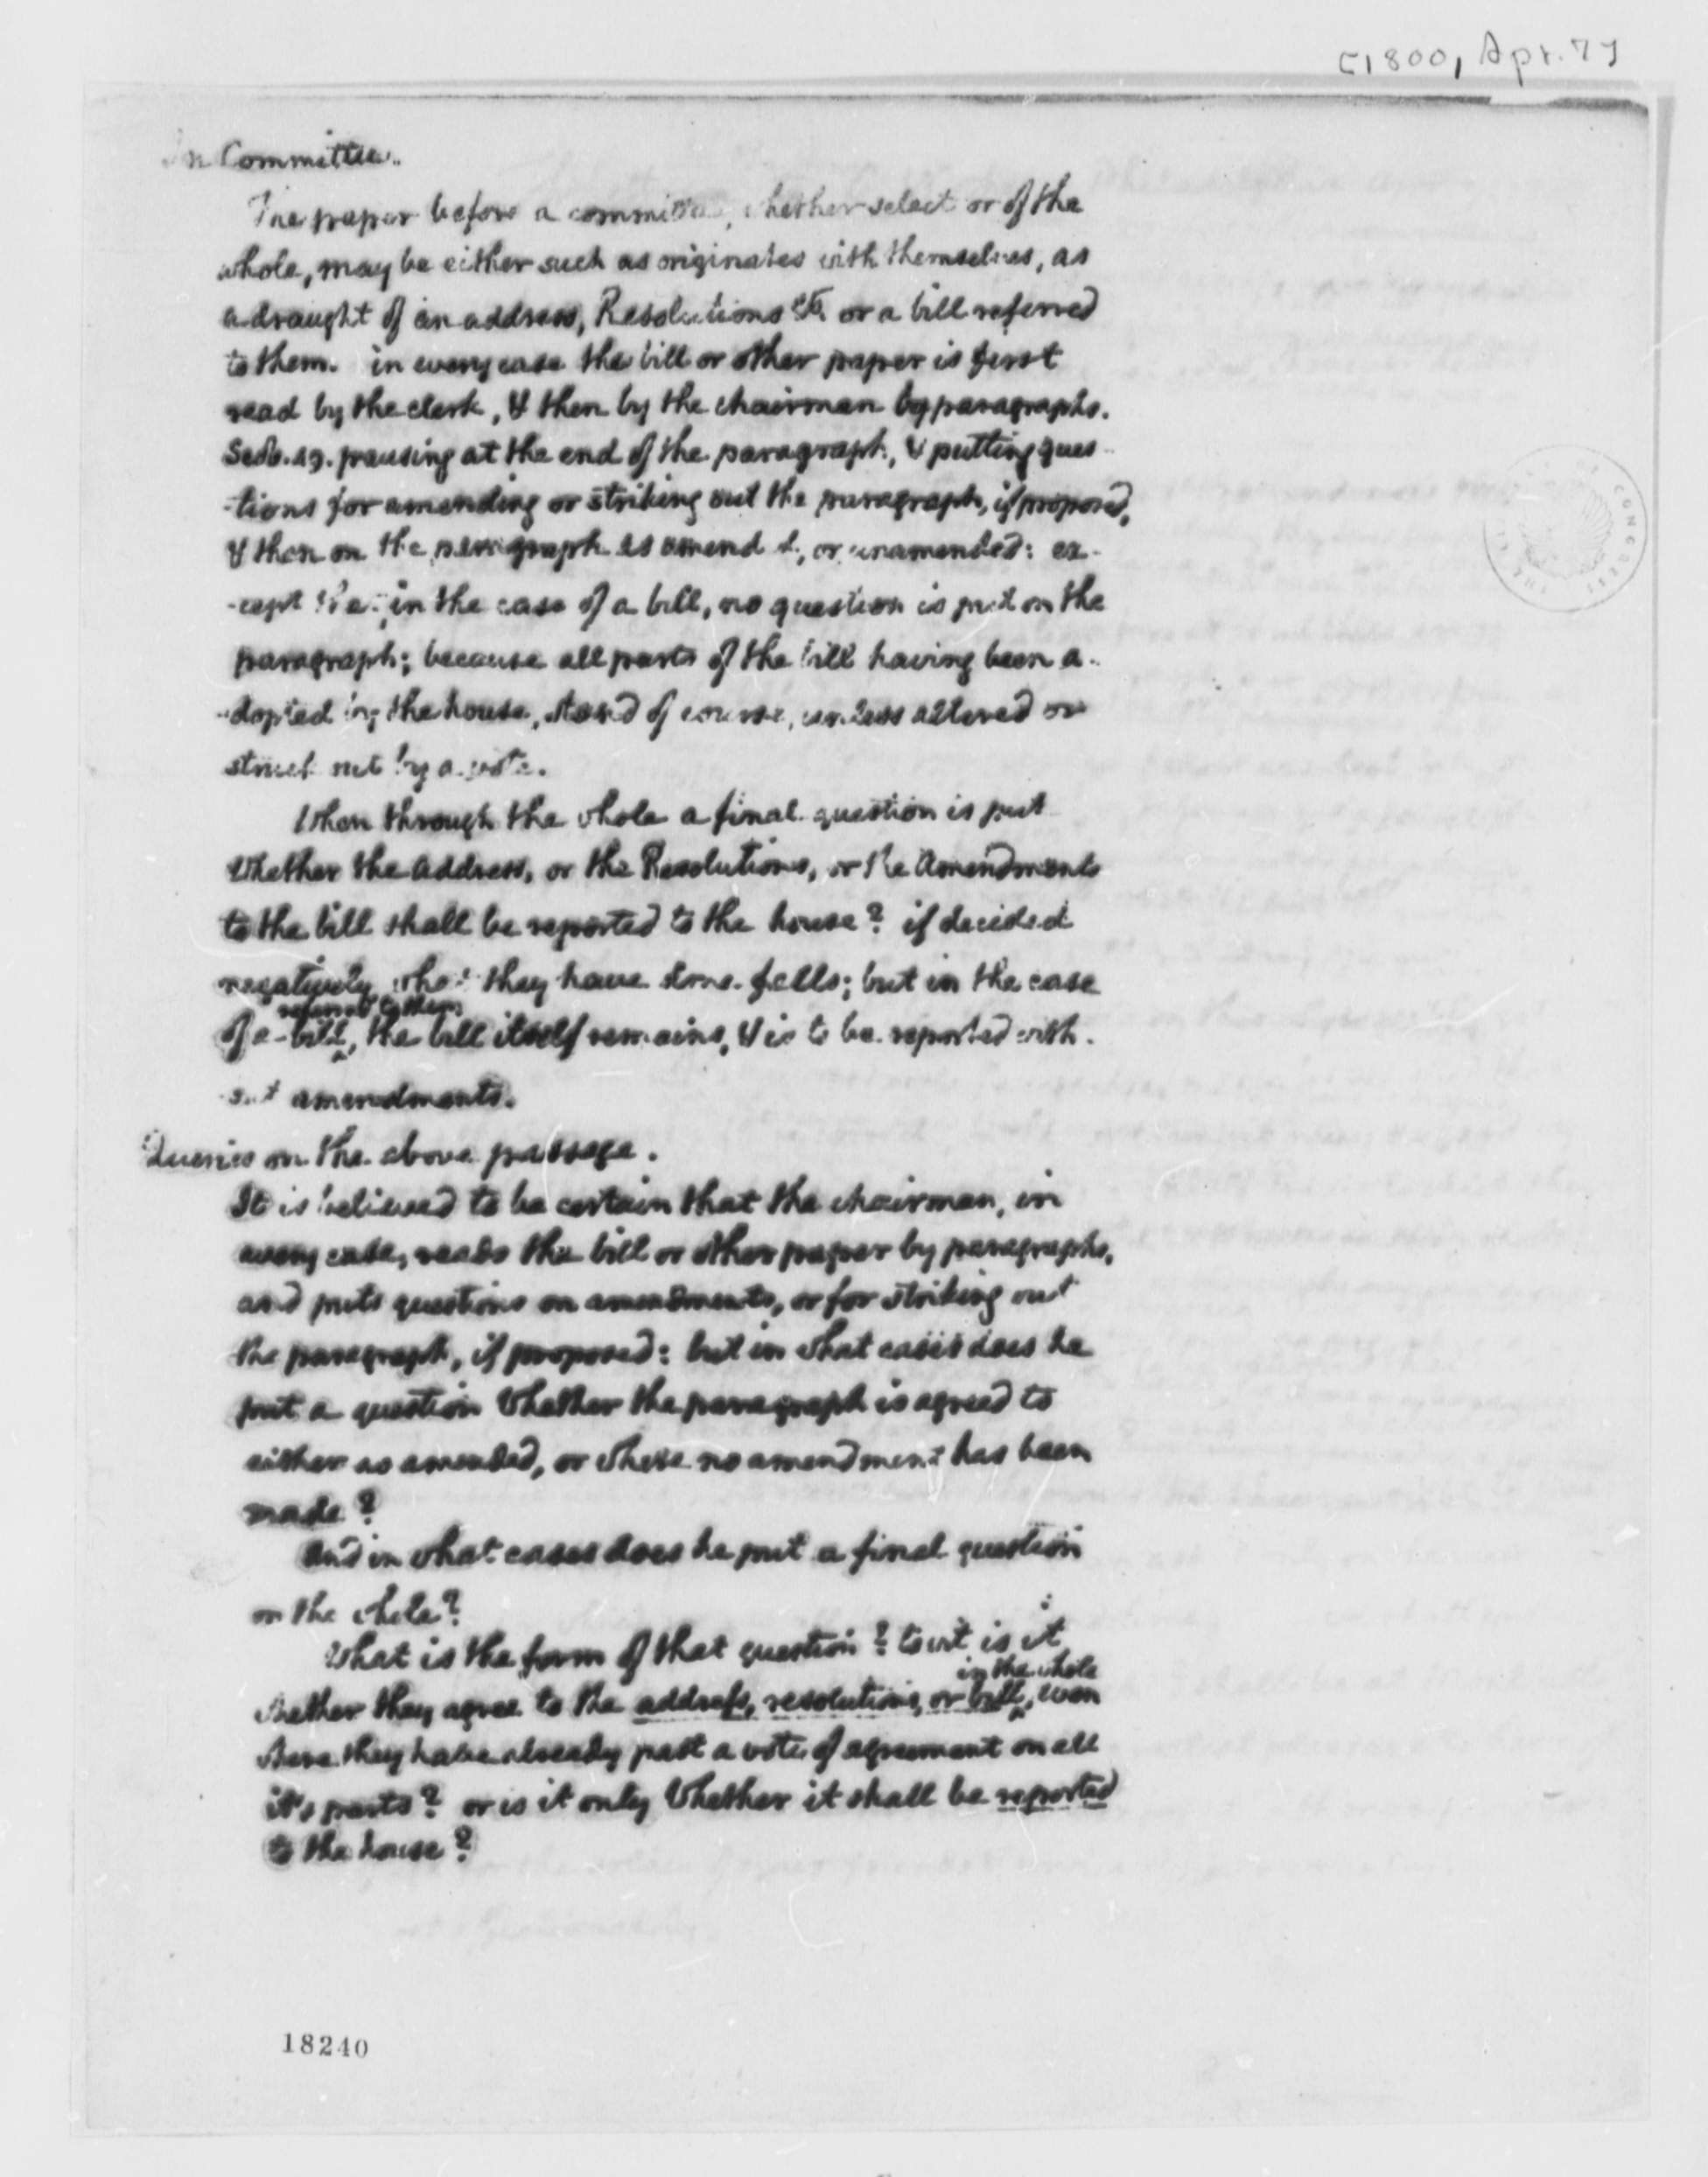 [1800, Apr. 7]
In Committee.
The paper before a committee, whether select or of the
whole, may be either such as originates with themselves, as
a draught of an address, Resolutions &c. or a bill referred
to them. in every case the bill or other paper is first
read by the clerk, & then by the chairman by paragraphs.
Scob. 49. pausing at the end of the paragraph, & putting ques-
-tions for amending or striking out the paragraph, if proposed,
& then on the paragraph as amended, or unamended: ex-
-cept that in the case of a bill, no question is put on the
paragraph; because all parts of the bill having been a-
-dopted by the house, stand of course, unless altered or
struck out by a vote.
When through the whole a final question is put
Whether the Address, or the Resolutions, or the Amendments
to the bill shall be reported to the house? if decided
negatively what they have done falls; but in the case
referred to them
of a bill, the bill itself remains, & is to be reported with-
out amendments.
Queries on the above passage.
It is believed to be certain that the chairman, in
every case, reads the bill or other paper by paragraphs,
and puts questions on amendments, or for striking out
the paragraph, if proposed: but in what cases does he
put a question Whether the paragraph is agreed to
either as amended, or where no amendment has been
made?
And in what cases does he put a final question
on the whole?
What is the form of that question? to wit is it
in the whole
whether they agree to the address, resolutions, or bill, even
where they have already past a vote of agreement on all
it's parts? or is it only Whether it shall be reported
to the house?
18240